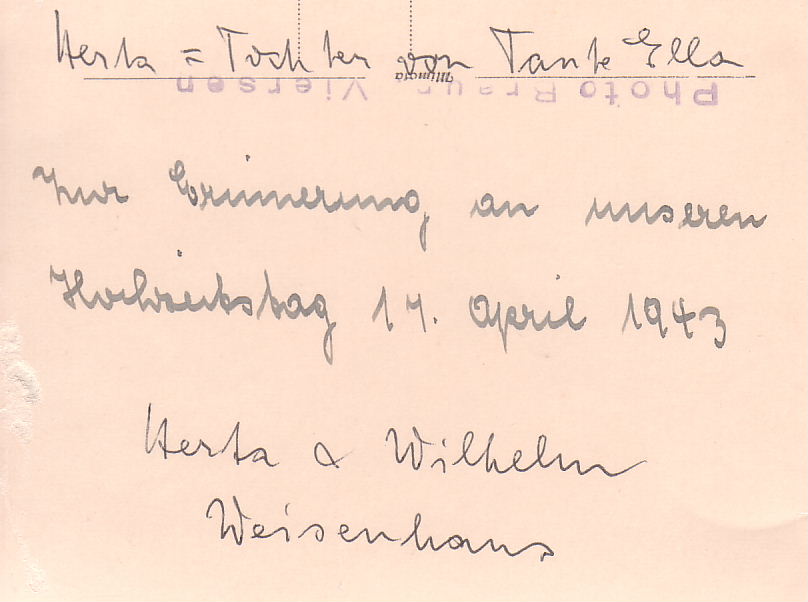 Herta = Tochter von Tante Ella
Mimosa
Photo Braun, Viersen
Zur Erinnerung an unseren
Hochzeitstag 17. April 1943
Herta & Wilhelm
Weisenhaus